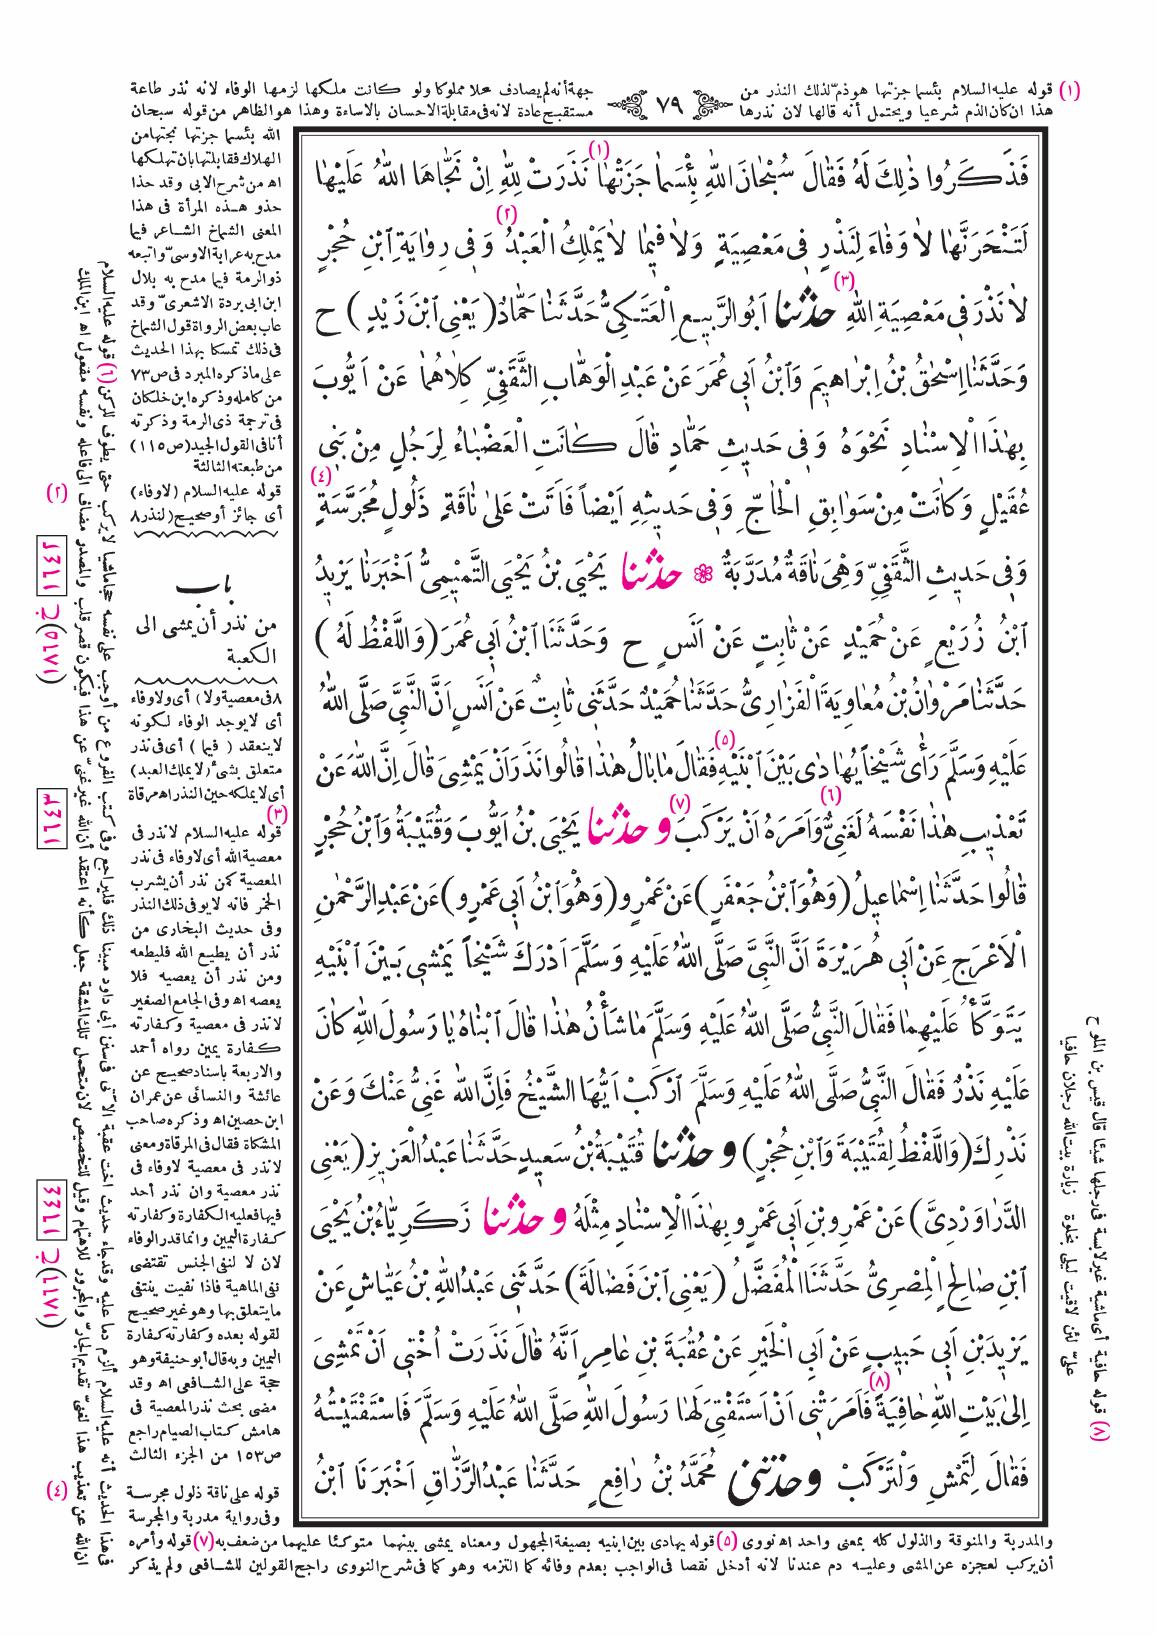 (١) قوله عليه السلام بئسما جزتها هو ذمّ لذلك النذر من
هذا ان كان الذم شرعيا ويحتمل أنه قالها لان نذرها
﴿ ٧٩ ﴾
جهة أنه لم يصادف محلا مملوكا ولو كانت ملكها لزمها الوفاء لانه نذر طاعة
مستقبح عادة لانه فى مقابلة الاحسان بالاساءة وهذا هو الظاهر من قوله سبحان
الله بئسما جزتها نجتها من
الهلاك فقابلتها بان تهلكها
اه من شرح الابى وقد حذا
حذو هذه المرأة فى هذا
المعنى الشماخ الشاعر فيما
مدح به عرابة الاوسىّ واتبعه
ذو الرمة فيما مدح به بلال
ابن ابى بردة الاشعرىّ وقد
عاب بعض الرواة قول الشماخ
فى ذلك تمسكا بهذا الحديث
على ما ذكره المبرد فى ص ٧٣
من كامله وذكره ابن خلكان
فى ترجمة ذى الرمة وذكرته
أنا فى القول الجيد (ص ١١٥)
من طبعته الثالثة
(٢) قوله عليه السلام (لا وفاء)
أى جائز أو صحيح (لنذر ٨
باب
من نذر أن يمشى الى
الكعبة
٨ فى معصية ولا) أى ولا وفاء
أى لا يوجد الوفاء لكونه
لا ينعقد (فيما) أى فى نذر
متعلق بشىء (لا يملك العبد)
أى لا يملكه حين النذر اه مرقاة
(٣)
قوله عليه السلام لا نذر فى
معصية الله أى لا وفاء فى نذر
المعصية كمن نذر أن يشرب
الخمر فانه لا يوفى ذلك النذر
وفى حديث البخارى من
نذر أن يطيع الله فليطعه
ومن نذر أن يعصيه فلا
يعصه اه وفى الجامع الصغير
لا نذر فى معصية وكفارته
كفارة يمين رواه أحمد
والاربعة باسناد صحيح عن
عائشة والنسائى عن عمران
ابن حصين اه وذكره صاحب
المشكاة فقال فى المرقاة ومعنى
لا نذر فى معصية لا وفاء فى
نذر معصية وان نذر أحد
فيها فعليه الكفارة وكفارته
كفارة اليمين وانما قدر الوفاء
لان لا لنفى الجنس تقتضى
نفى الماهية فاذا نفيت ينتفى
ما يتعلق بها وهو غير صحيح
لقوله بعده وكفارته كفارة
اليمين وبه قال أبو حنيفة وهو
حجة على الشافعى اه وقد
مضى بحث نذر المعصية فى
هامش كتاب الصيام راجع
ص ١٥٣ من الجزء الثالث
(٤) قوله على ناقة ذلول مجرسة
وفى رواية مدربة والمجرسة
فَذَكَرُوا ذٰلِكَ لَهُ فَقَالَ سُبْحَانَ اللّٰهِ بِئْسَمَا جَزَتْهَا (١) نَذَرَتْ لِلّٰهِ اِنْ نَجَّاهَا اللّٰهُ عَلَيْهَا
لَتَنْحَرَنَّهَا لَا وَفَاءَ لِنَذْرٍ فِى مَعْصِيَةٍ وَلَا فِيمَا لَا يَمْلِكُ الْعَبْدُ (٢) وَفِى رِوَايَةِ ابْنِ حُجْرٍ
لَا نَذْرَ فِى مَعْصِيَةِ اللّٰهِ (٣) حَدَّثَنَا اَبُو الرَّبِيعِ الْعَتَكِىُّ حَدَّثَنَا حَمَّادٌ (يَعْنِى ابْنَ زَيْدٍ) ح
وَحَدَّثَنَا اِسْحٰقُ بْنُ اِبْرَاهِيمَ وَابْنُ اَبِى عُمَرَ عَنْ عَبْدِ الْوَهَّابِ الثَّقَفِىِّ كِلَاهُمَا عَنْ اَيُّوبَ
بِهٰذَا الْاِسْنَادِ نَحْوَهُ وَفِى حَدِيثِ حَمَّادٍ قَالَ كَانَتِ الْعَضْبَاءُ لِرَجُلٍ مِنْ بَنِى
عُقَيْلٍ وَكَانَتْ مِنْ سَوَابِقِ الْحَاجِّ وَفِى حَدِيثِهِ اَيْضاً فَاَتَتْ عَلٰى نَاقَةٍ ذَلُولٍ مُجَرَّسَةٍ (٤)
وَفِى حَدِيثِ الثَّقَفِىِّ وَهِىَ نَاقَةٌ مُدَرَّبَةٌ ۞ حَدَّثَنَا يَحْيَى بْنُ يَحْيَى التَّمِيمِىُّ اَخْبَرَنَا يَزِيدُ
ابْنُ زُرَيْعٍ عَنْ حُمَيْدٍ عَنْ ثَابِتٍ عَنْ اَنَسٍ ح وَحَدَّثَنَا ابْنُ اَبِى عُمَرَ (وَاللَّفْظُ لَهُ)
حَدَّثَنَا مَرْوَانُ بْنُ مُعَاوِيَةَ الْفَزَارِىُّ حَدَّثَنَا حُمَيْدٌ حَدَّثَنِى ثَابِتٌ عَنْ اَنَسٍ اَنَّ النَّبِىَّ صَلَّى اللّٰهُ
عَلَيْهِ وَسَلَّمَ رَأٰى شَيْخاً يُهَادٰى بَيْنَ ابْنَيْهِ (٥) فَقَالَ مَا بَالُ هٰذَا قَالُوا نَذَرَ اَنْ يَمْشِىَ قَالَ اِنَّ اللّٰهَ عَنْ
تَعْذِيبِ هٰذَا نَفْسَهُ لَغَنِىٌّ (٦) وَاَمَرَهُ اَنْ يَرْكَبَ (٧) وَحَدَّثَنَا يَحْيَى بْنُ اَيُّوبَ وَقُتَيْبَةُ وَابْنُ حُجْرٍ
قَالُوا حَدَّثَنَا اِسْمَاعِيلُ (وَهُوَ ابْنُ جَعْفَرٍ) عَنْ عَمْرٍو (وَهُوَ ابْنُ اَبِى عَمْرٍو) عَنْ عَبْدِ الرَّحْمٰنِ
الْاَعْرَجِ عَنْ اَبِى هُرَيْرَةَ اَنَّ النَّبِىَّ صَلَّى اللّٰهُ عَلَيْهِ وَسَلَّمَ اَدْرَكَ شَيْخاً يَمْشِى بَيْنَ ابْنَيْهِ
يَتَوَكَّأُ عَلَيْهِمَا فَقَالَ النَّبِىُّ صَلَّى اللّٰهُ عَلَيْهِ وَسَلَّمَ مَا شَأْنُ هٰذَا قَالَ ابْنَاهُ يَا رَسُولَ اللّٰهِ كَانَ
عَلَيْهِ نَذْرٌ فَقَالَ النَّبِىُّ صَلَّى اللّٰهُ عَلَيْهِ وَسَلَّمَ ارْكَبْ اَيُّهَا الشَّيْخُ فَاِنَّ اللّٰهَ غَنِىٌّ عَنْكَ وَعَنْ
نَذْرِكَ (وَاللَّفْظُ لِقُتَيْبَةَ وَابْنِ حُجْرٍ) وَحَدَّثَنَا قُتَيْبَةُ بْنُ سَعِيدٍ حَدَّثَنَا عَبْدُ الْعَزِيزِ (يَعْنِى
الدَّرَاوَرْدِىَّ) عَنْ عَمْرِو بْنِ اَبِى عَمْرٍو بِهٰذَا الْاِسْنَادِ مِثْلَهُ وَحَدَّثَنَا زَكَرِيَّاءُ بْنُ يَحْيَى
ابْنِ صَالِحٍ الْمِصْرِىُّ حَدَّثَنَا الْمُفَضَّلُ (يَعْنِى ابْنَ فَضَالَةَ) حَدَّثَنِى عَبْدُ اللّٰهِ بْنُ عَيَّاشٍ عَنْ
يَزِيدَ بْنِ اَبِى حَبِيبٍ عَنْ اَبِى الْخَيْرِ عَنْ عُقْبَةَ بْنِ عَامِرٍ اَنَّهُ قَالَ نَذَرَتْ اُخْتِى اَنْ تَمْشِىَ
اِلٰى بَيْتِ اللّٰهِ حَافِيَةً (٨) فَاَمَرَتْنِى اَنْ اَسْتَفْتِىَ لَهَا رَسُولَ اللّٰهِ صَلَّى اللّٰهُ عَلَيْهِ وَسَلَّمَ فَاسْتَفْتَيْتُهُ
فَقَالَ لِتَمْشِ وَلْتَرْكَبْ وَحَدَّثَنِى مُحَمَّدُ بْنُ رَافِعٍ حَدَّثَنَا عَبْدُ الرَّزَّاقِ اَخْبَرَنَا ابْنُ
والمدربة والمنوقة والذلول كله بمعنى واحد اه نووى (٥) قوله يهادى بين ابنيه بصيغة المجهول ومعناه يمشى بينهما متوكئا عليهما من ضعف به (٧) قوله وأمره
أن يركب لعجزه عن المشى وعليه دم عندنا لانه أدخل نقصا فى الواجب بعدم وفائه كما التزمه وهو كما فى شرح النووى راجح القولين للشافعى ولم يذكر
فى هذا الحديث أنه عليه السلام ألزم دما عليه وقد جاء حديث اخت عقبة الآتى فى سنن أبى داود مبينا ذلك فليراجع وفى كتب الفروع من أوجب على نفسه حجا ماشيا لا يركب حتى يطوف للركن (٦) قوله عليه السلام
ان الله عن تعذيب هذا لغنىّ تقديم الجارّ والمجرور للاهتمام وقيل للتخصيص لان متحمل تلك المشقة جعل كأنه اعتقد أن الله غير غنىّ عن هذا فيكون قصر قلب والمصدر مضاف الى فاعله ونفسه مفعول اه ابن الملك
(٨) قوله حافية أى ماشية غير لابسة فى رجلها شيئا قال قيس بن الملوح
علىّ لئن لاقيت ليلى بخلوة زيارة بيت الله رجلان حافيا
١١٦٤٢ ج (٥١٧١)
١١٦٤٣
١١٦٤٤ ج (١١٧١)